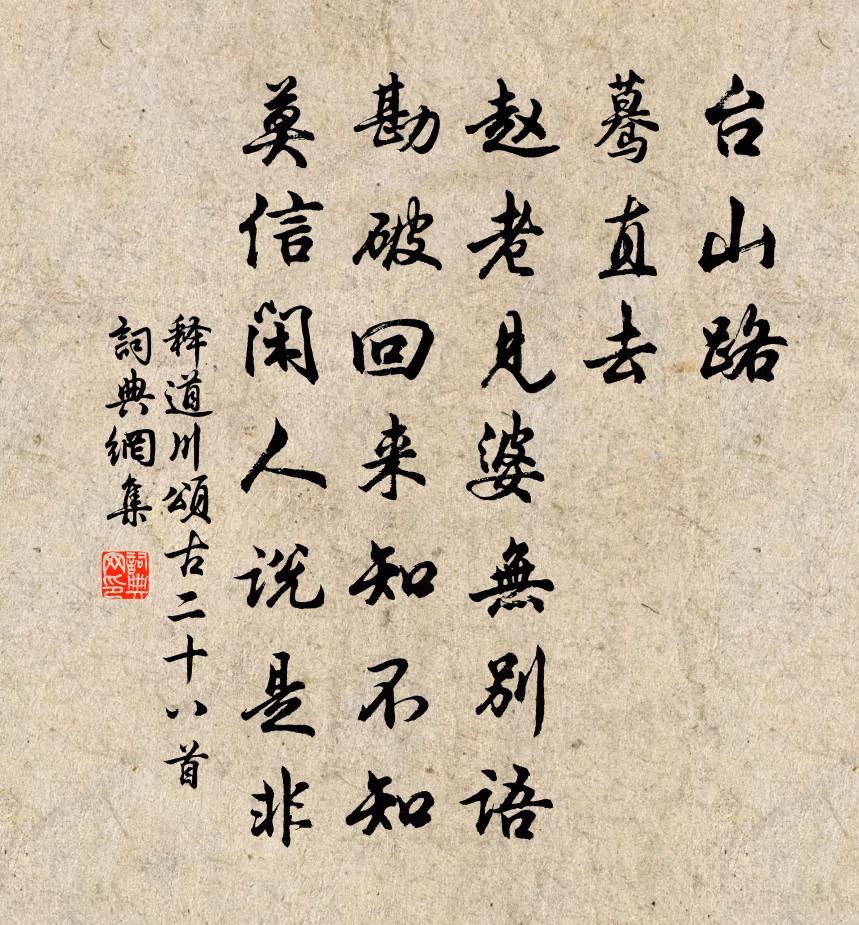 台山路
蓦直去
赵老见婆無别语
勘破回来知不知
莫信闲人说是非
释道川颂古二十八首
詞典網集
詞典网印